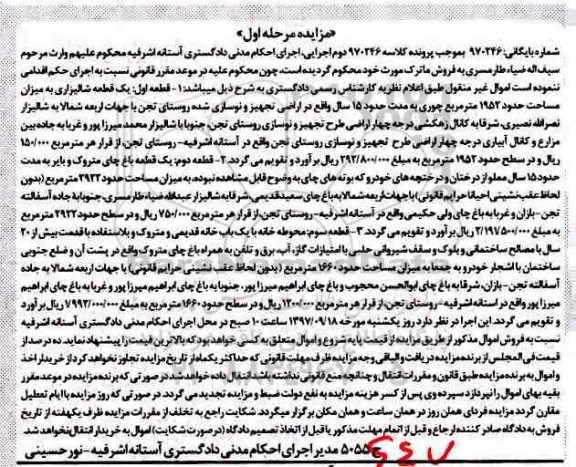 «مزایده مرحله اول»
شماره بایگانی: ۹۷۰۲۴۶ بموجب پرونده کلاسه ۹۷۰۲۴۶ دوم اجرایی، اجرای احکام مدنی دادگستری آستانه اشرفیه محکوم علیهم وارث مرحوم
سیف اله ضیاء ظار مسری به فروش ماترک مورث خود محکوم گردیده است، چون محکوم علیه در موعد مقرر قانونی نسبت به اجرای حکم اقدامی
ننموده است اموال غیر منقول طبق اعلام نظریه کارشناس رسمی دادگستری به شرح ذیل میباشند: ۱- قطعه اول: یک قطعه شالیزاری به میزان
مساحت حدود ۱۹۵۲ متر مربع چوری به مدت حدود ۱۵ سال واقع در اراضی تجهیز و نوسازی شده روستای تجن با جهات اربعه شمالا به شالیزار
نصراله نصیری، شرقا به کانال زهکشی درجه چهار اراضی طرح تجهیز و نوسازی روستای تجن جنوبا با شالیزار محمد میرزا پور و غربا به جاده بین
مزارع و کانال آبیاری درجه چهار اراضی طرح تجهیز و نوسازی روستای تجن واقع در آستانه اشرفیه - روستای تجن، از قرار هر متر مربع ۱۵۰/۰۰۰
ریال و در سطح حدود ۱۹۵۲ متر مربع به مبلغ ۲۹۲/۸۰۰/۰۰۰ ریال بر آورد و تقویم می گردد. ۲- قطعه دوم: یک قطعه باغ چای متروک و بایر به مدت
حدود ۱۵ سال مملو از درختان و درختچه های خودرو که بوته های چای به وضوح قابل مشاهده نبوده، به میزان مساحت حدود ۲۹۲۲ متر مربع (بدون
لحاظ عقب نشینی احیانا حرایم قانونی) با جهات اربعه شمالا به باغ چای سعید قدیمی، شرقا به شالیزار عبدالله ضیاء ظار مسری، جنوبا به جاده آسفالته
تجن - بازان و غربا به باغ چای ولی حکیمی واقع در آستانه اشرفیه - روستای تجن، از قرار هر متر مربع ۷۵۰/۰۰۰ ریال و در سطح حدود ۲۹۲۲ متر مربع
به مبلغ ۲/۱۹۷/۵۰۰/۰۰۰ ریال بر آورد و تقویم می گردد. ۳- قطعه سوم: محوطه خانه با یک باب خانه قدیمی و متروک و بلااستفاده با قدمت بیش از ۲۰
سال با مصالح ساختمانی و بلوک و سقف شیروانی حلبی با امتیازات گاز، آب، برق و تلفن به همراه باغ چای متروک واقع در پشت آن و ضلع جنوبی
ساختمان با اشجار خودرو به جمعا به میزان مساحت حدود ۱۶۶۰ متر مربع (بدون لحاظ عقب نشینی حرایم قانونی) با جهات اربعه شمالا به جاده
آسفالته تجن - بازان، شرقا به باغ چای ابوالحسن محجوب و باغ چای ابراهیم میرزا پور، جنوبا به باغ چای ابراهیم میرزا پور و غربا به باغ چای ابراهیم
میرزا پور واقع در آستانه اشرفیه - روستای تجن، از قرار هر متر مربع ۱۲۰۰/۰۰۰ ریال و در سطح حدود ۱۶۶۰ متر مربع به مبلغ ۷۹۹۲/۰۰۰/۰۰۰ ریال بر آورد
و تقویم می گردد. این اجرا در نظر دارد روز یکشنبه مورخه ۱۳۹۷/۰۹/۱۸ ساعت ۱۰ صبح در محل اجرای احکام مدنی دادگستری آستانه اشرفیه
نسبت به فروش اموال مذکور از طریق مزایده از قیمت پایه شروع و اموال متعلق به کسی خواهد بود که بالاترین قیمت را پیشنهاد نماید. ده درصد از
قیمت فی المجلس از برنده مزایده دریافت و الباقی وجه مزایده ظرف مهلت قانونی که حداکثر یکماه از تاریخ مزایده تجاوز نخواهد کرد از خریدار اخذ
و اموال به برنده مزایده طبق قانون و مقررات انتقال و چنانچه منع قانونی نداشته باشد انتقال داده خواهد شد. در صورتی که برنده مزایده در موعد مقرر
بقیه بهای اموال را نپردازد سپرده وی پس از کسر هزینه مزایده به نفع دولت ضبط و مزایده تجدید می گردد. در صورتی که روز مزایده با ایام تعطیل
مقارن گردد مزایده فردای همان روز در همان ساعت و همان مکان برگزار میگردد. شکایت راجع به تخلف از مقررات مزایده ظرف یکهفته از تاریخ
فروش به دادگاه صادر کننده ارجاع و قبل از اتمام مهلت مذکور یا قبل از اتخاذ تصمیم دادگاه (در صورت شکایت) اموال به خریدار انتقال نخواهد شد.
ج ۵۰۵۵ مدیر اجرای احکام مدنی دادگستری آستانه اشرفیه - نور حسینی